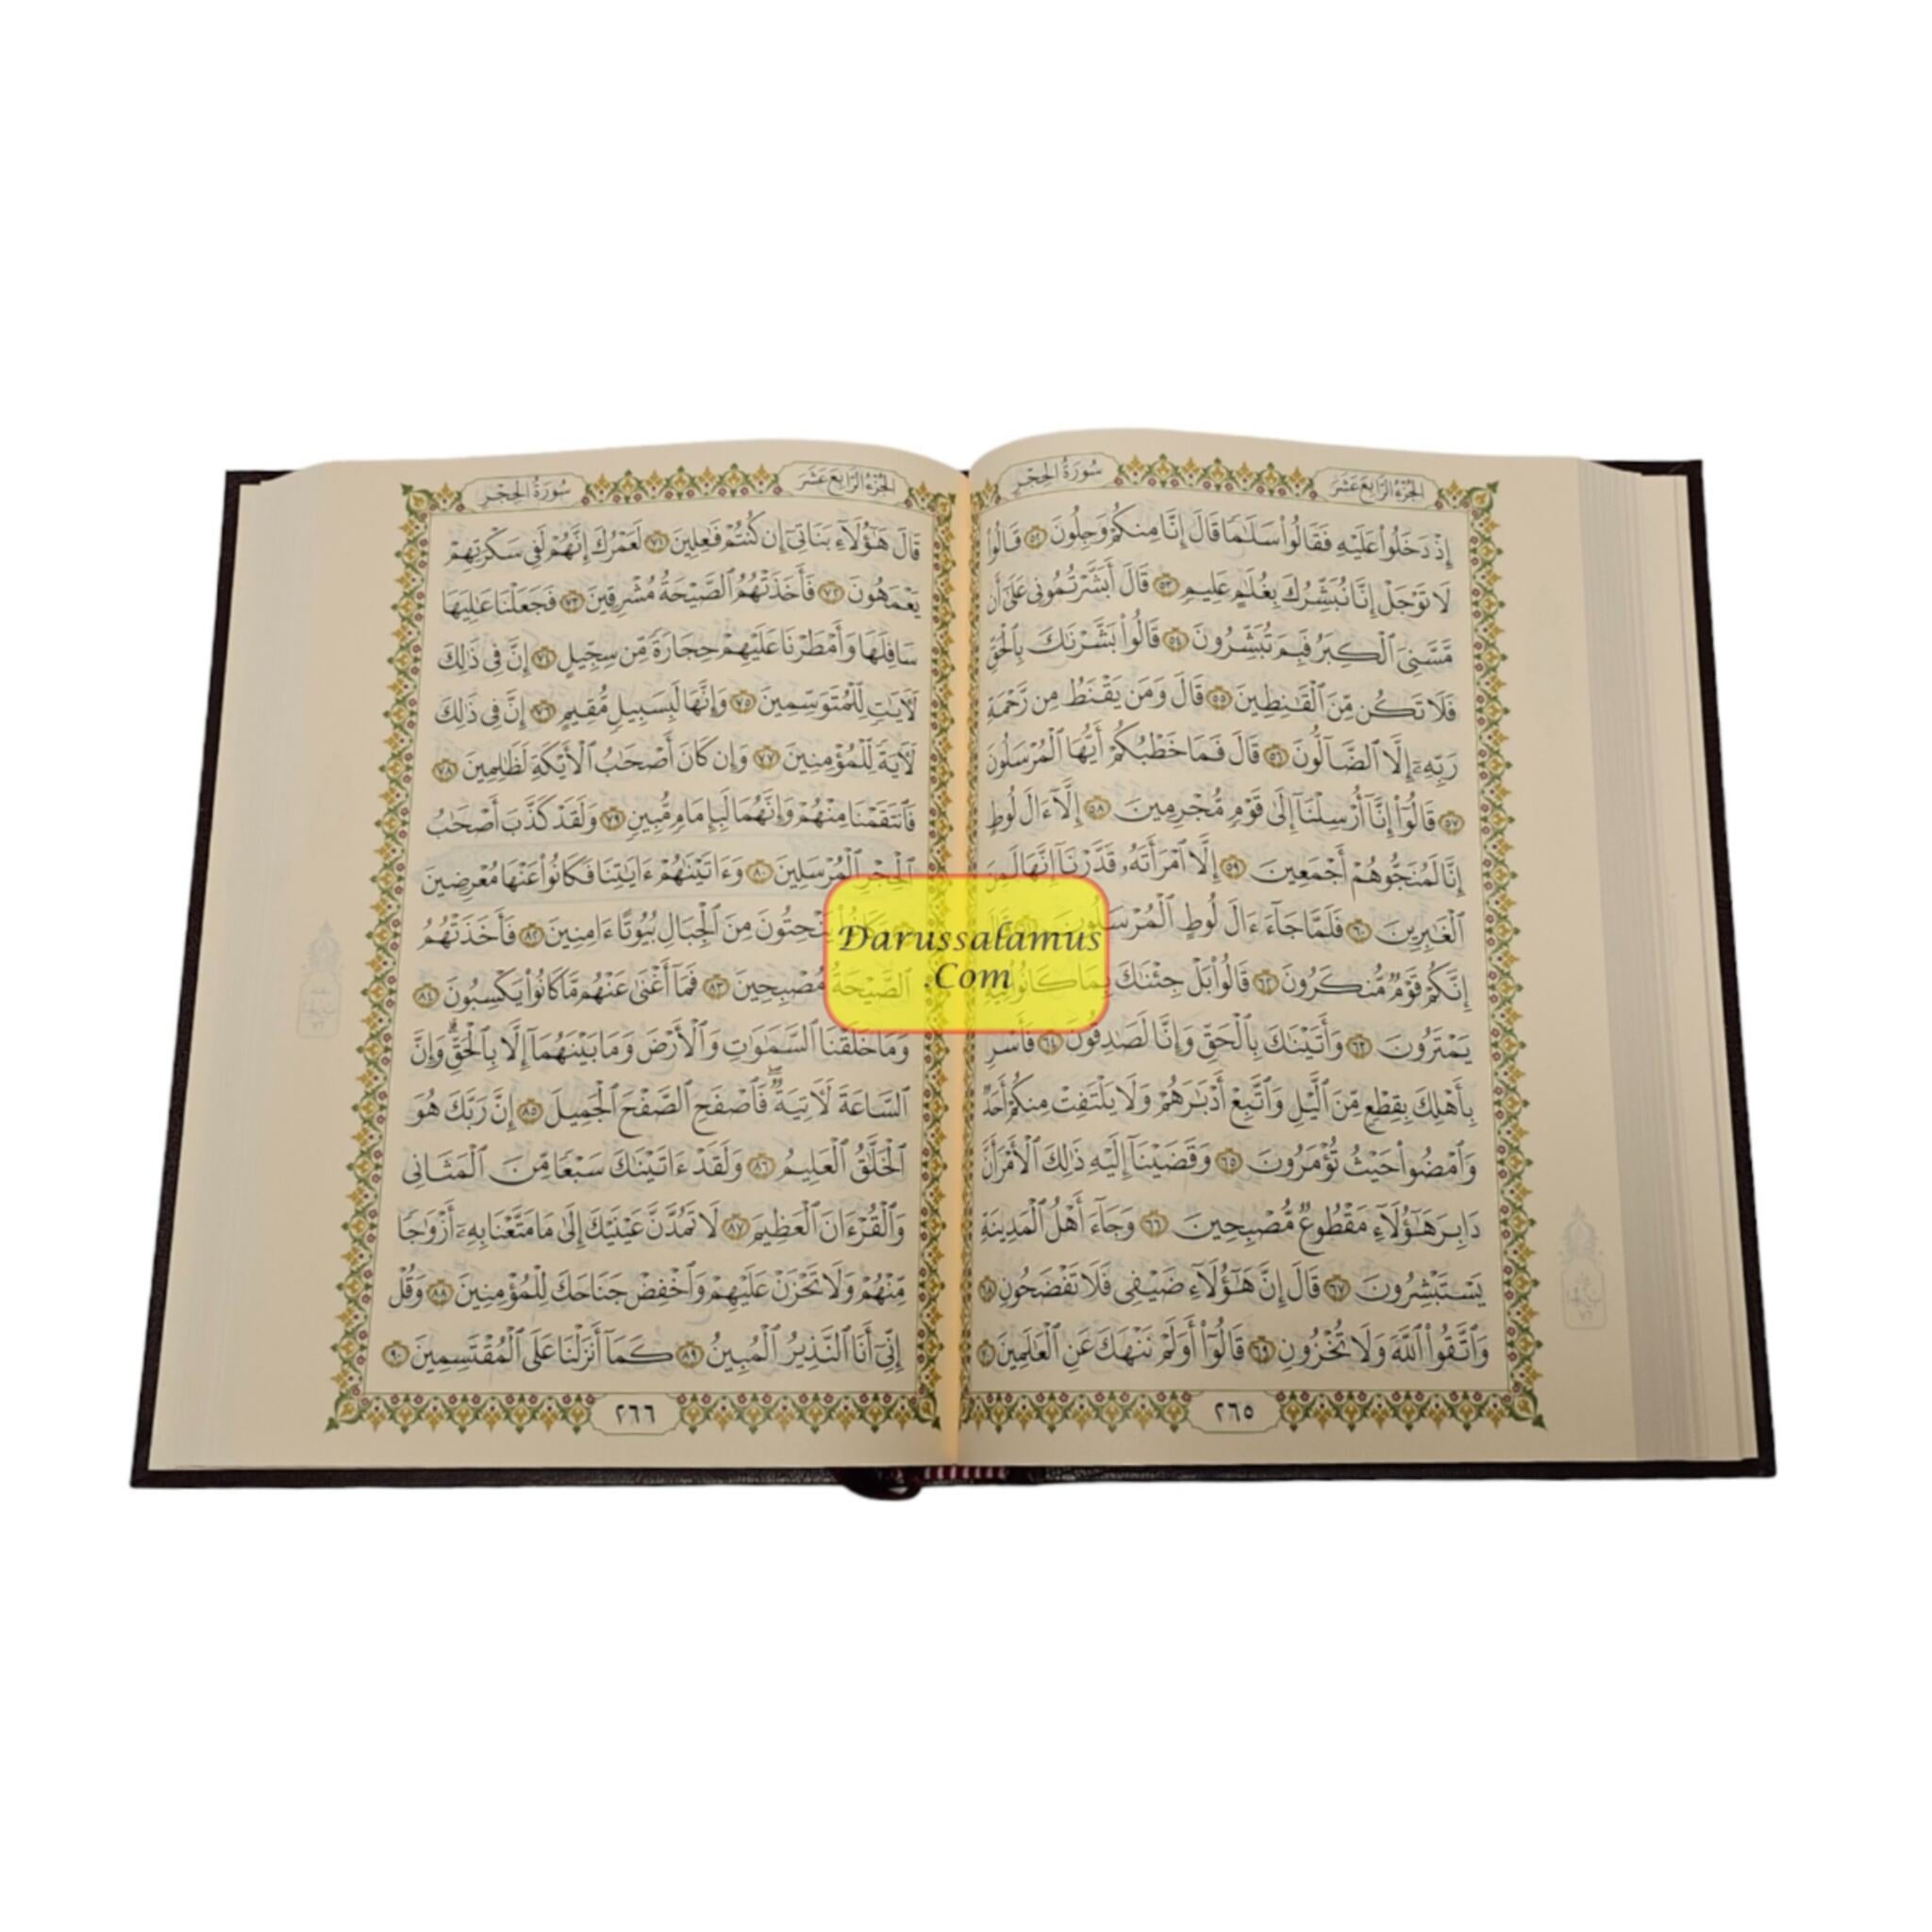 الجزء الرابع عشر
سورة الحجر
إِذْ دَخَلُوا۟ عَلَيْهِ فَقَالُوا۟ سَلَـٰمًا قَالَ إِنَّا مِنكُمْ وَجِلُونَ ٥٢ قَالُوا۟
لَا تَوْجَلْ إِنَّا نُبَشِّرُكَ بِغُلَـٰمٍ عَلِيمٍ ٥٣ قَالَ أَبَشَّرْتُمُونِى عَلَىٰٓ أَن
مَّسَّنِىَ ٱلْكِبَرُ فَبِمَ تُبَشِّرُونَ ٥٤ قَالُوا۟ بَشَّرْنَـٰكَ بِٱلْحَقِّ
فَلَا تَكُن مِّنَ ٱلْقَـٰنِطِينَ ٥٥ قَالَ وَمَن يَقْنَطُ مِن رَّحْمَةِ
رَبِّهِۦٓ إِلَّا ٱلضَّآلُّونَ ٥٦ قَالَ فَمَا خَطْبُكُمْ أَيُّهَا ٱلْمُرْسَلُونَ
٥٧ قَالُوٓا۟ إِنَّآ أُرْسِلْنَآ إِلَىٰ قَوْمٍ مُّجْرِمِينَ ٥٨ إِلَّآ ءَالَ لُوطٍ
إِنَّا لَمُنَجُّوهُمْ أَجْمَعِينَ ٥٩ إِلَّا ٱمْرَأَتَهُۥ قَدَّرْنَآ إِنَّهَا لَمِنَ
ٱلْغَـٰبِرِينَ ٦٠ فَلَمَّا جَآءَ ءَالَ لُوطٍ ٱلْمُرْسَلُونَ ٦١ قَالَ
إِنَّكُمْ قَوْمٌ مُّنكَرُونَ ٦٢ قَالُوا۟ بَلْ جِئْنَـٰكَ بِمَا كَانُوا۟ فِيهِ
يَمْتَرُونَ ٦٣ وَأَتَيْنَـٰكَ بِٱلْحَقِّ وَإِنَّا لَصَـٰدِقُونَ ٦٤ فَأَسْرِ
بِأَهْلِكَ بِقِطْعٍ مِّنَ ٱلَّيْلِ وَٱتَّبِعْ أَدْبَـٰرَهُمْ وَلَا يَلْتَفِتْ مِنكُمْ أَحَدٌ
وَٱمْضُوا۟ حَيْثُ تُؤْمَرُونَ ٦٥ وَقَضَيْنَآ إِلَيْهِ ذَٰلِكَ ٱلْأَمْرَ أَنَّ
دَابِرَ هَـٰٓؤُلَآءِ مَقْطُوعٌ مُّصْبِحِينَ ٦٦ وَجَآءَ أَهْلُ ٱلْمَدِينَةِ
يَسْتَبْشِرُونَ ٦٧ قَالَ إِنَّ هَـٰٓؤُلَآءِ ضَيْفِى فَلَا تَفْضَحُونِ ٦٨
وَٱتَّقُوا۟ ٱللَّهَ وَلَا تُخْزُونِ ٦٩ قَالُوٓا۟ أَوَلَمْ نَنْهَكَ عَنِ ٱلْعَـٰلَمِينَ ٧٠
٢٦٥
الجزء الرابع عشر
سورة الحجر
قَالَ هَـٰٓؤُلَآءِ بَنَاتِىٓ إِن كُنتُمْ فَـٰعِلِينَ ٧١ لَعَمْرُكَ إِنَّهُمْ لَفِى سَكْرَتِهِمْ
يَعْمَهُونَ ٧٢ فَأَخَذَتْهُمُ ٱلصَّيْحَةُ مُشْرِقِينَ ٧٣ فَجَعَلْنَا عَـٰلِيَهَا
سَافِلَهَا وَأَمْطَرْنَا عَلَيْهِمْ حِجَارَةً مِّن سِجِّيلٍ ٧٤ إِنَّ فِى ذَٰلِكَ
لَـَٔايَـٰتٍ لِّلْمُتَوَسِّمِينَ ٧٥ وَإِنَّهَا لَبِسَبِيلٍ مُّقِيمٍ ٧٦ إِنَّ فِى ذَٰلِكَ
لَـَٔايَةً لِّلْمُؤْمِنِينَ ٧٧ وَإِن كَانَ أَصْحَـٰبُ ٱلْأَيْكَةِ لَظَـٰلِمِينَ ٧٨
فَٱنتَقَمْنَا مِنْهُمْ وَإِنَّهُمَا لَبِإِمَامٍ مُّبِينٍ ٧٩ وَلَقَدْ كَذَّبَ أَصْحَـٰبُ
ٱلْحِجْرِ ٱلْمُرْسَلِينَ ٨٠ وَءَاتَيْنَـٰهُمْ ءَايَـٰتِنَا فَكَانُوا۟ عَنْهَا مُعْرِضِينَ
وَكَانُوا۟ يَنْحِتُونَ مِنَ ٱلْجِبَالِ بُيُوتًا ءَامِنِينَ ٨٢ فَأَخَذَتْهُمُ
ٱلصَّيْحَةُ مُصْبِحِينَ ٨٣ فَمَآ أَغْنَىٰ عَنْهُم مَّا كَانُوا۟ يَكْسِبُونَ ٨٤
وَمَا خَلَقْنَا ٱلسَّمَـٰوَٰتِ وَٱلْأَرْضَ وَمَا بَيْنَهُمَآ إِلَّا بِٱلْحَقِّ ۗ وَإِنَّ
ٱلسَّاعَةَ لَـَٔاتِيَةٌ ۖ فَٱصْفَحِ ٱلصَّفْحَ ٱلْجَمِيلَ ٨٥ إِنَّ رَبَّكَ هُوَ
ٱلْخَلَّـٰقُ ٱلْعَلِيمُ ٨٦ وَلَقَدْ ءَاتَيْنَـٰكَ سَبْعًا مِّنَ ٱلْمَثَانِى
وَٱلْقُرْءَانَ ٱلْعَظِيمَ ٨٧ لَا تَمُدَّنَّ عَيْنَيْكَ إِلَىٰ مَا مَتَّعْنَا بِهِۦٓ أَزْوَٰجًا
مِّنْهُمْ وَلَا تَحْزَنْ عَلَيْهِمْ وَٱخْفِضْ جَنَاحَكَ لِلْمُؤْمِنِينَ ٨٨ وَقُلْ
إِنِّىٓ أَنَا ٱلنَّذِيرُ ٱلْمُبِينُ ٨٩ كَمَآ أَنزَلْنَا عَلَى ٱلْمُقْتَسِمِينَ ٩٠
٢٦٦
Darussalamus
.Com